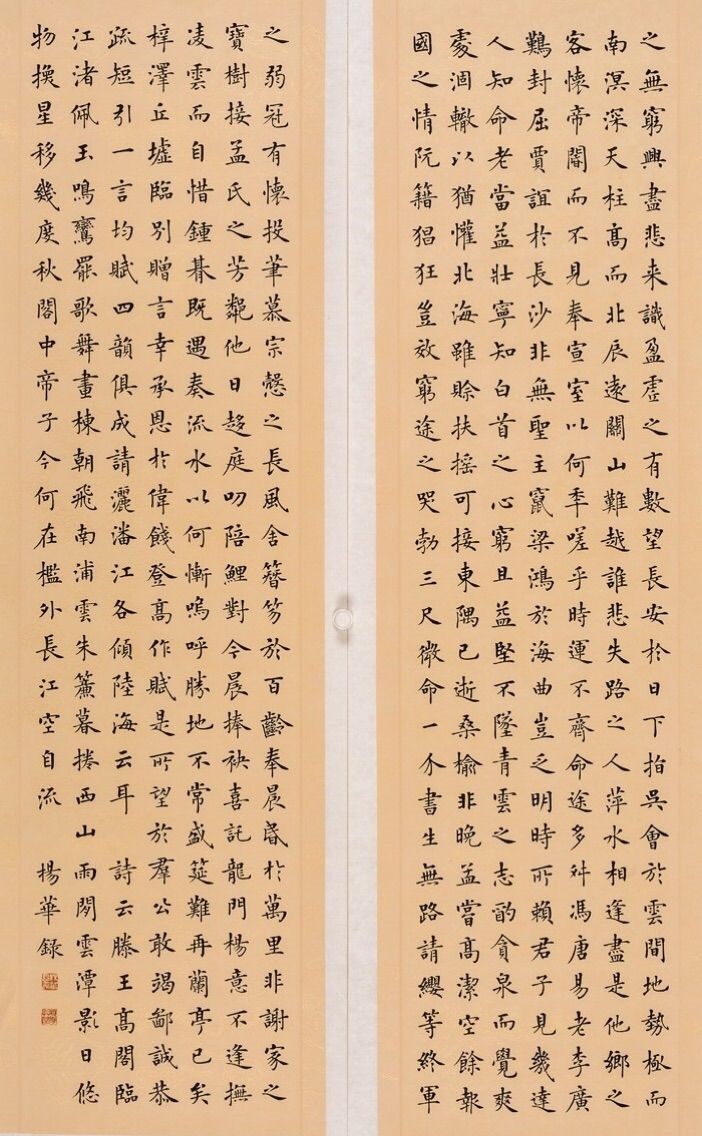 之無窮興盡悲来識盈虛之有數望長安於日下指吳會於雲間地勢極而
南溟深天柱髙而北辰遠關山難越誰悲失路之人萍水相逢盡是他鄉之
客懷帝閽而不見奉宣室以何年嗟乎時運不齊命途多舛馮唐易老李廣
難封屈賈誼於長沙非無聖主竄梁鴻於海曲豈乏明時所賴君子見幾達
人知命老當益壯寧知白首之心窮且益堅不墜青雲之志酌貪泉而覺爽
處涸轍以猶懽北海雖賒扶搖可接東隅已逝桑榆非晚孟嘗髙潔空餘報
國之情阮籍猖狂豈效窮途之哭勃三尺微命一介書生無路請纓等終軍
之弱冠有懷投筆慕宗慤之長風舍簪笏於百齡奉晨昏於萬里非謝家之
寶樹接孟氏之芳鄰他日趍庭叨陪鯉對今晨捧袂喜託龍門楊意不逢撫
凌雲而自惜鍾朞既遇奏流水以何慚嗚呼勝地不常盛筵難再蘭亭已矣
梓澤丘墟臨別贈言幸承恩於偉餞登髙作賦是所望於羣公敢竭鄙誠恭
疏短引一言均賦四韻俱成請灑潘江各傾陸海云耳 詩云滕王髙閣臨
江渚佩玉鳴鸞罷歌舞畫棟朝飛南浦雲朱簾暮捲西山雨閑雲潭影日悠
物換星移幾度秋閣中帝子今何在檻外長江空自流 楊華録